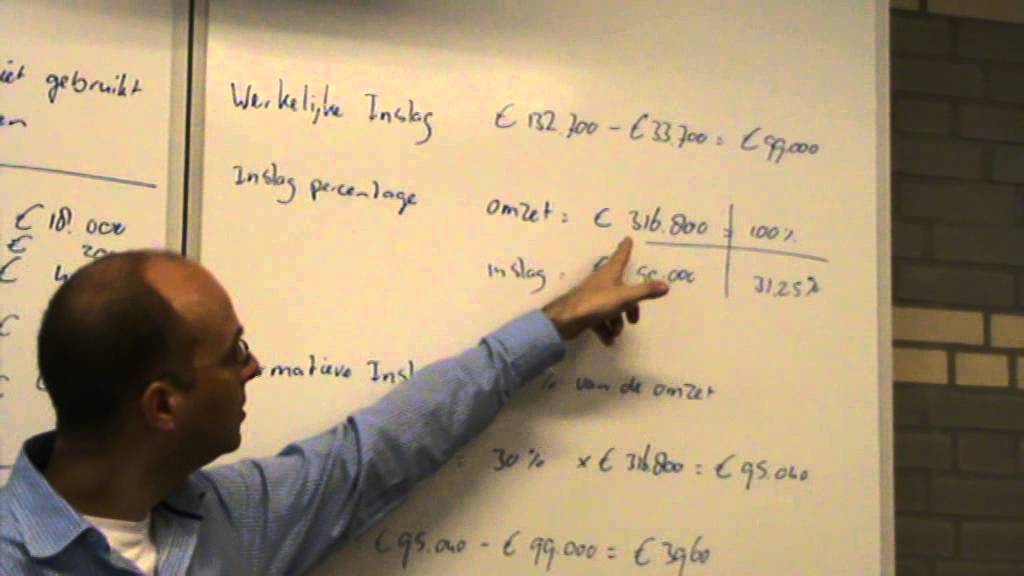 gebruikt
€ 181.000
€
€
€
Werkelijke Inslag € 132.700 - € 33.700 = € 99.000
Inslag percentage
omzet = € 316.800 = 100%
inslag = 31,25%
Insl
van de omzet
= 30% x € 316.800 = € 95.040
€ 95.040 - € 99.000 = € 3960